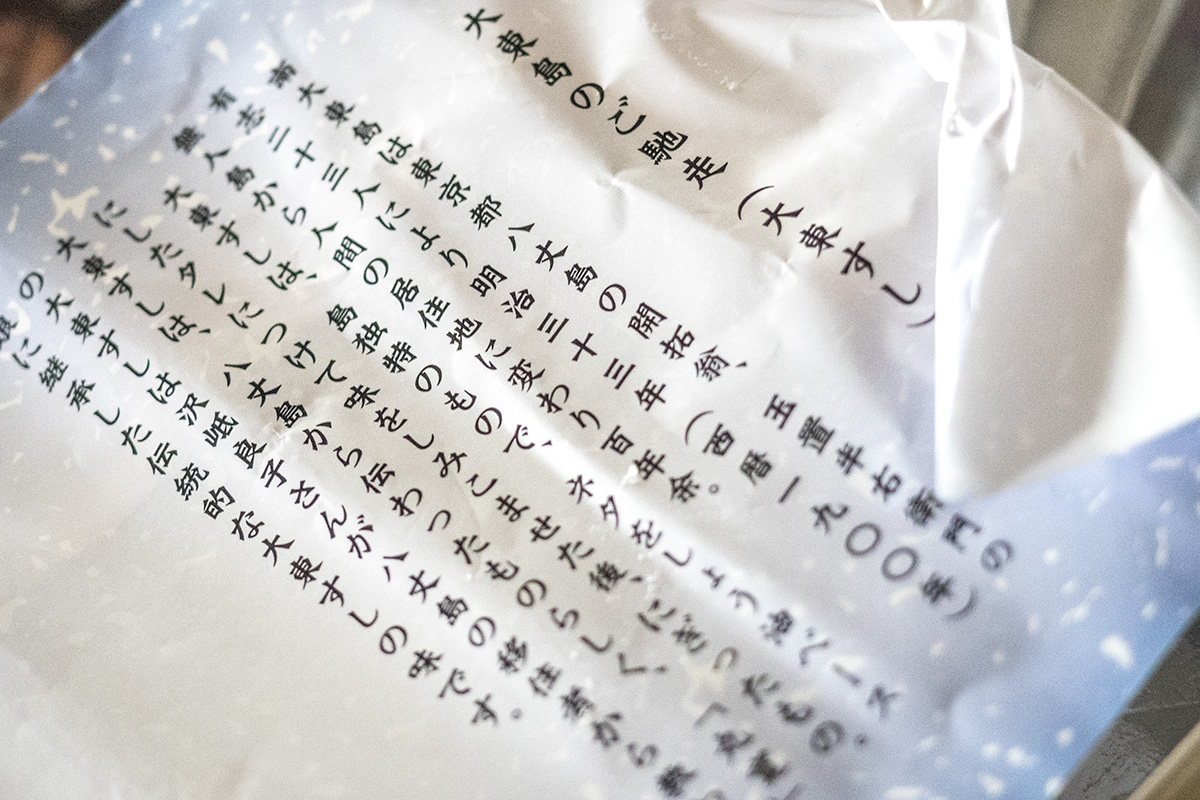 大東島のご馳走(大東すし)
南大東島は東京都八丈島の開拓翁、玉置半右衛門の
有志二十三人により明治三十三年(西暦一九〇〇年)
無人島から人間の居住地に変わり百年余。
大東すしは、島独特のもので、ネタをしょう油ベース
にしたタレにつけて味をしみこませた後、にぎったもの。
大東すしは、八丈島から伝わったものらしく、「丸重
の大東すしは沢岻良子さんが八丈島の移住者から教
に継承した伝統的な大東すしの味です。